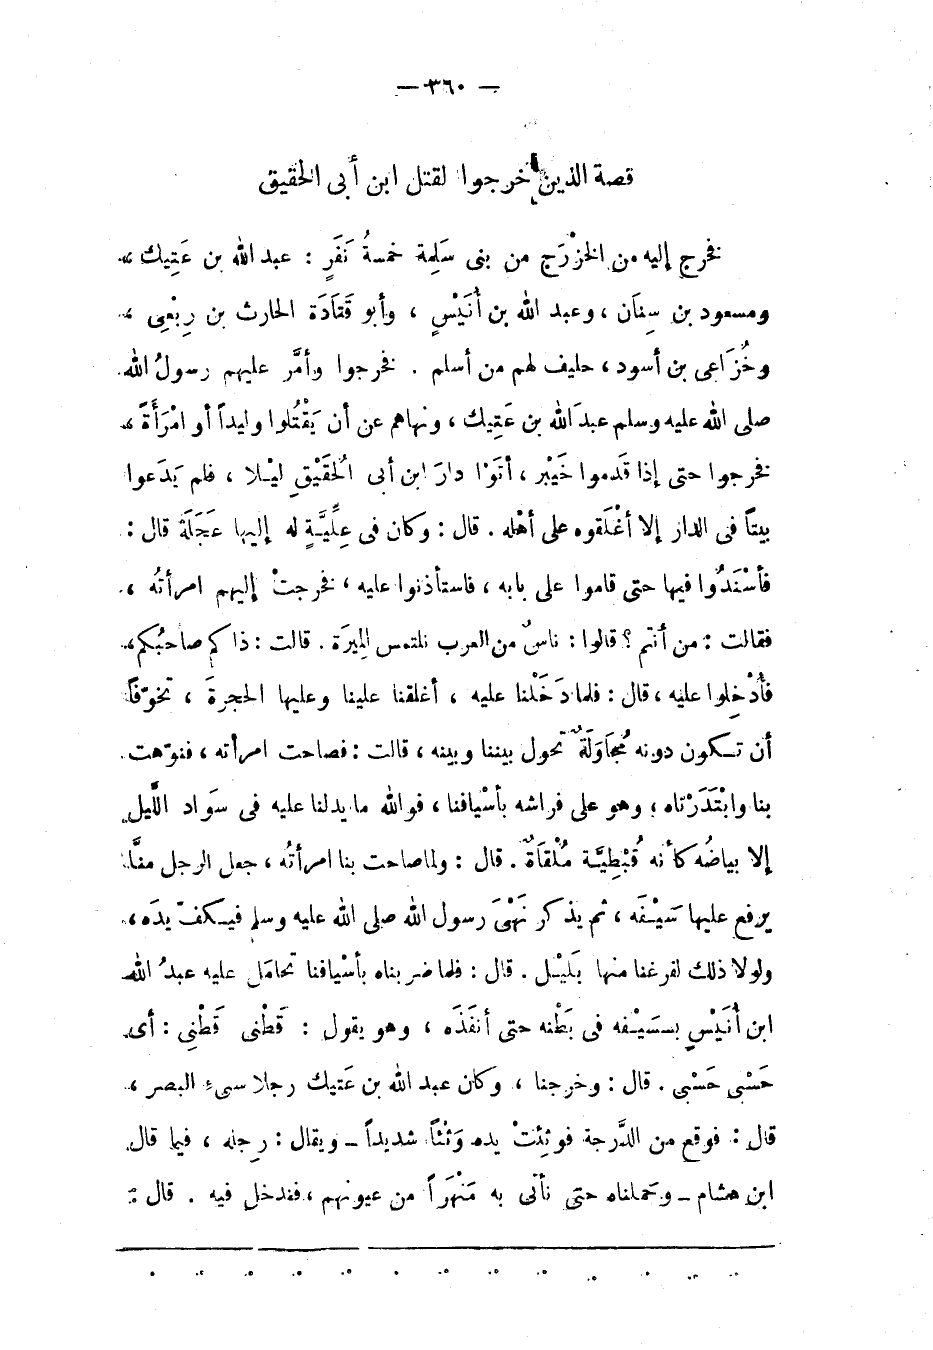 — ٣٦٠ —
قصة الذين خرجوا لقتل ابن أبى الحقيق
فخرج إليه من الخزْرَج من بنى سَلِمة خمسةُ نَفَرٍ : عبد الله بن عَتِيك ،
ومسعود بن سِنَان ، وعبد الله بن أُنَيْسٍ ، وأبو قَتَادَة الحارث بن رِبْعِى ،
وخُزَاعى بن أسود ، حليف لهم من أسلم . فخرجوا وأمَّر عليهم رسولُ الله
صلى الله عليه وسلم عبدَ الله بن عَتِيك ، ونهاهم عن أن يَقْتُلوا وليداً أو امْرَأَةً ،
فخرجوا حتى إذا قَدموا خَيْبر ، أتَوْا دارَ ابن أبى الحُقَيْقِ ليْـلا ، فلم يَدَعوا
بيتاً فى الدار إلا أغْلَقوه على أهْله . قال : وكان فى عِلِّيَّةٍ له إليها عَجَلَة قال :
فأسْنَدُوا فيها حتى قاموا على بابه ، فاستأذنوا عليه ، فخرجتْ إليهم امرأتُه ،
فقالت : من أنتم ؟ قالوا : ناسٌ من العرب نلتمس المِيرَة . قالت : ذاكم صاحبُكم ،
فأدْخِلوا عليه ، قال : فلما دَخَلْنا عليه ، أغلقنا علينا وعليها الحجرةَ ، تخوّفاً
أن تـكون دونه مُجاوَلَةٌ تحول بيننا وبينه ، قالت : فصاحت امرأته ، فنوّهت
بنا وابْتَدَرْناه ، وهو على فراشه بأسْيافنا ، فوالله ما يدلنا عليه فى سَوَاد اللَّيل
إلا بياضُه كأنه قُبْطِيَّة مُلْقاةٌ . قال : ولما صاحت بنا امرأتُه ، جعل الرجل منَّا
يرفع عليها سَيْـفَه ، ثم يذكر نَهْىَ رسول الله صلى الله عليه وسلم فيـكفّ يدَه ،
ولولا ذلك لفرغنا منها بَليْـل . قال : فلما ضربناه بأسْيافنا تحامَل عليه عبدُ الله
ابن أُنَيْسٍ بسَيْـفه فى بَطْنه حتى أنفَذَه ، وهو يقول : قَطْنى قَطْنِى : أى
حَسْبى حَسْبى . قال : وخرجنا ، وكان عبد الله بن عَتيك رجلا سىءِ البصر ،
قال : فوقع من الدَّرجة فوثِئتْ يده وَثْئاً شديداً – ويقال : رِجله ، فيما قال
ابن هشام – وحَملناه حتى نأتى به مَنْهَراً من عيونهم ، فندخل فيه . قال :